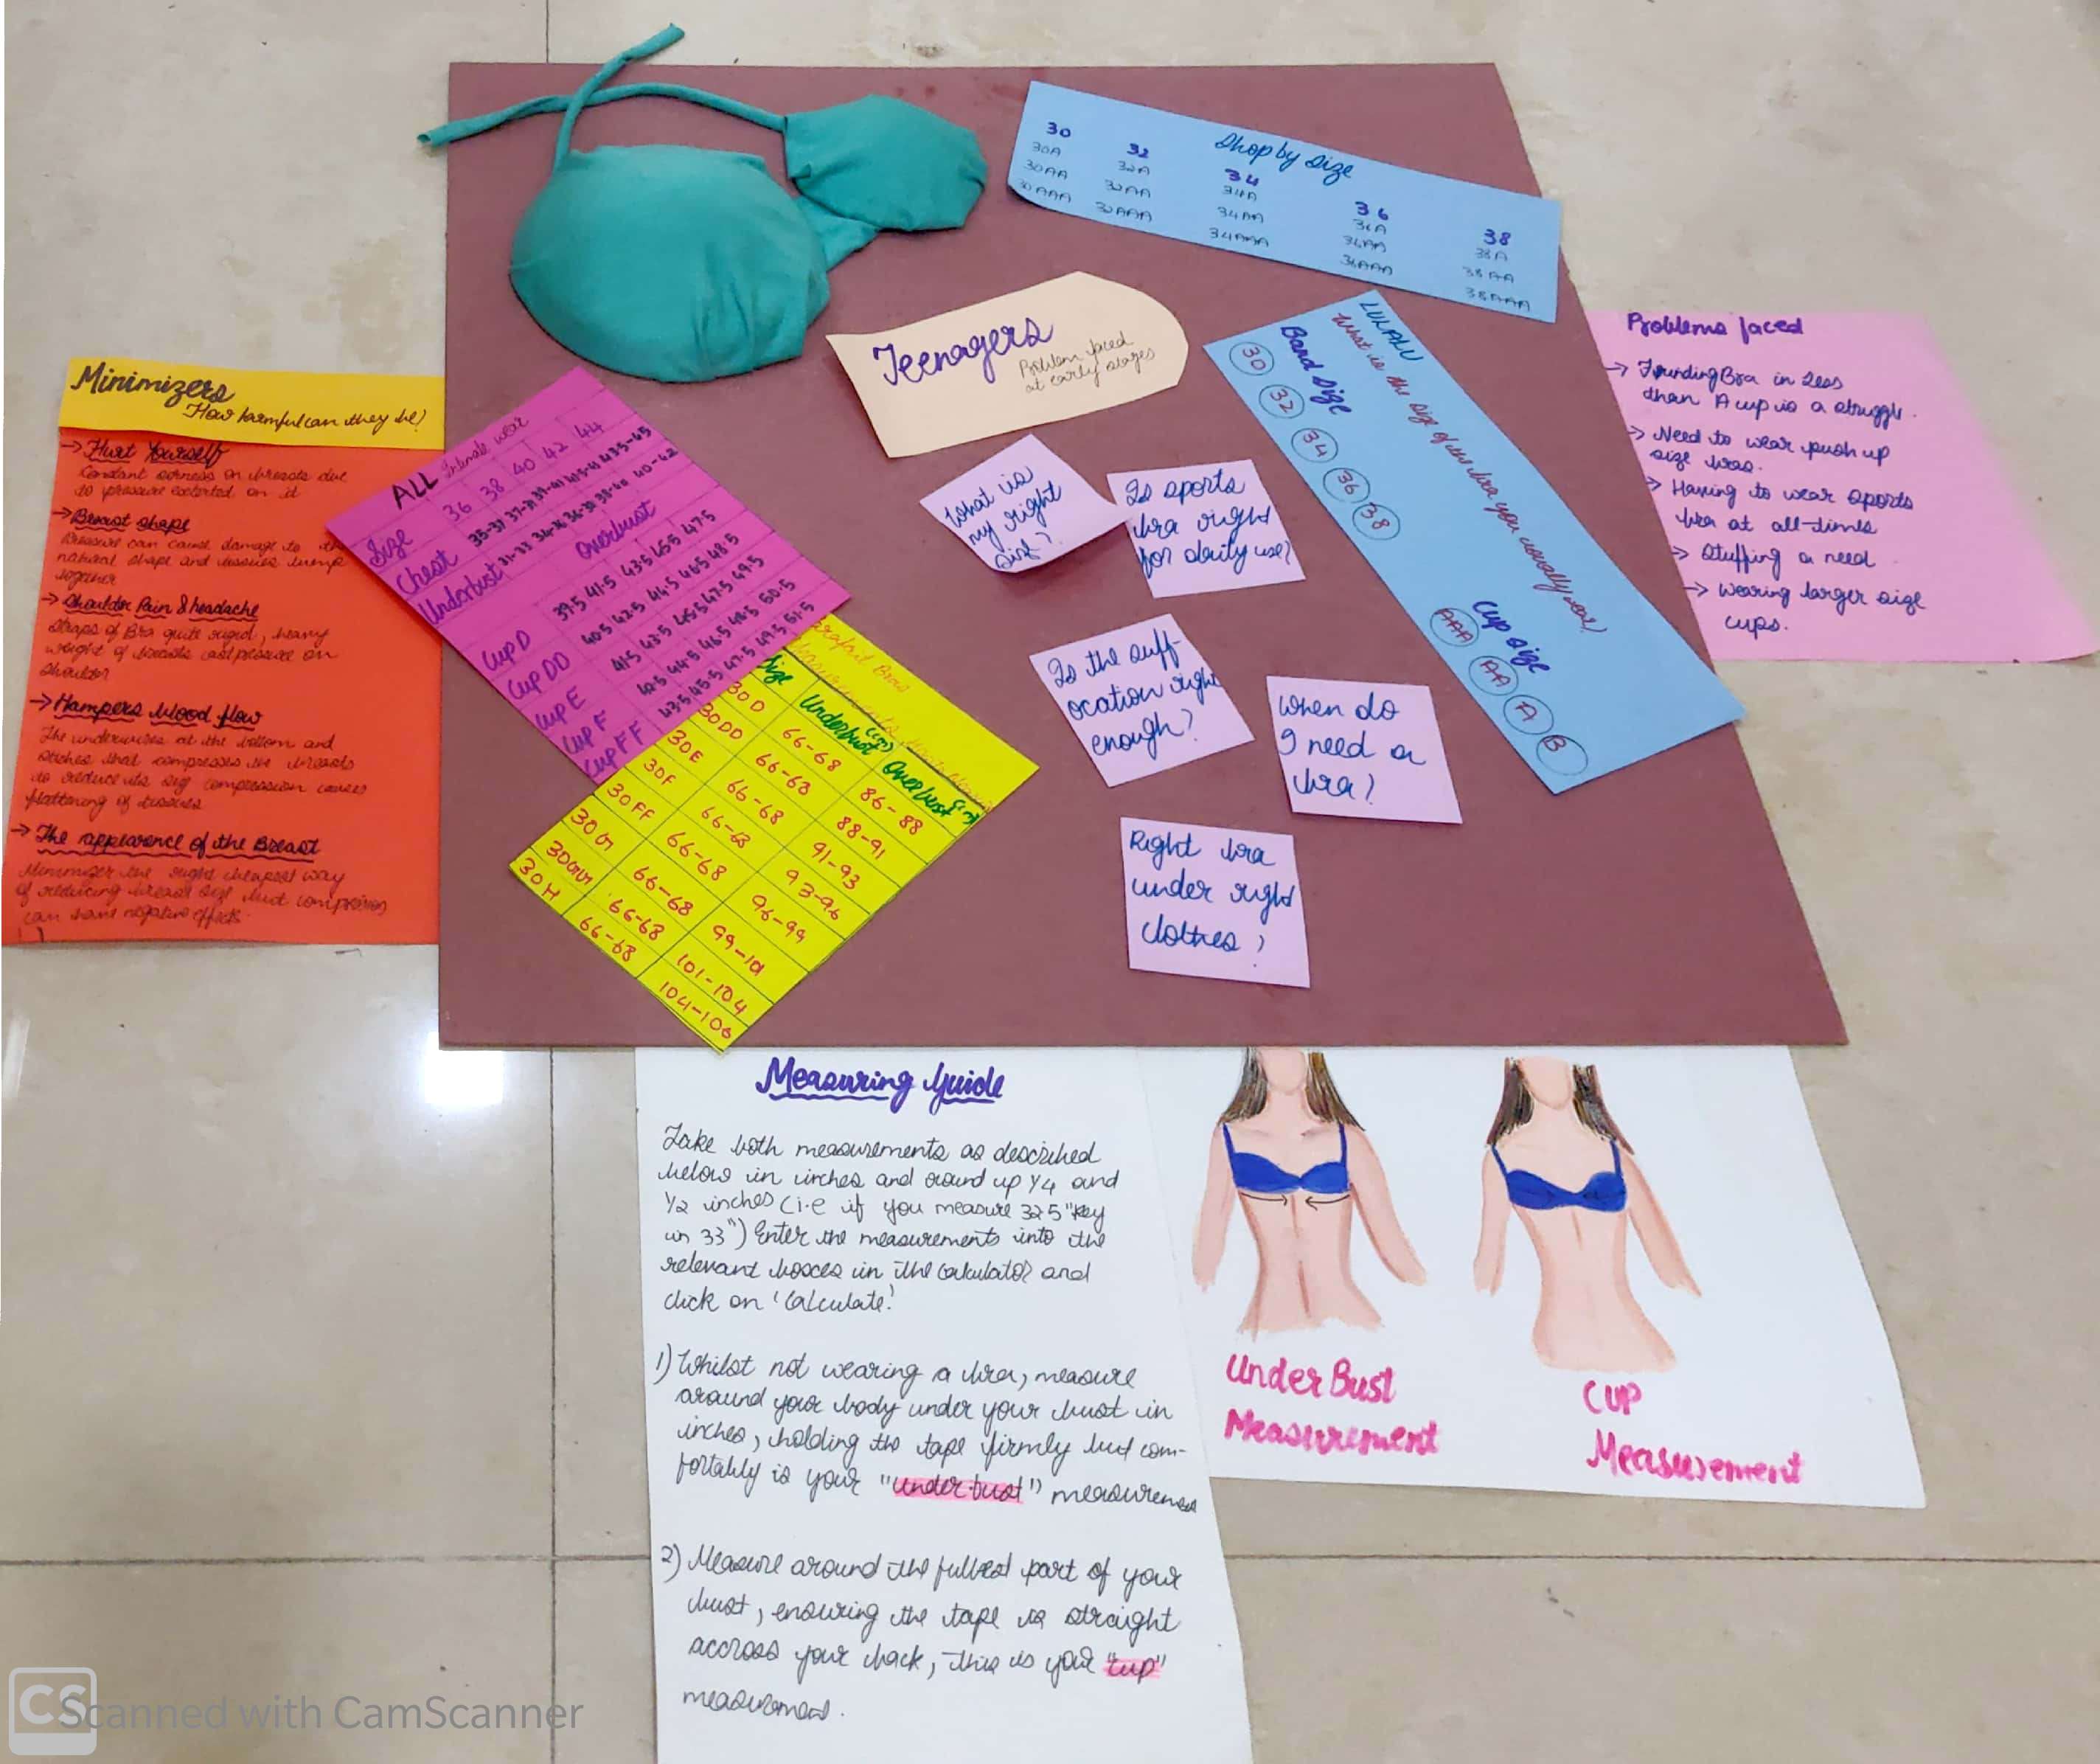 Shop by size
30
30A
30AA
30AAA
32
32A
32AA
32AAA
34
34A
34AA
34AAA
36
36A
36AA
36AAA
38
38A
38AA
38AAA
LULALU
What is the size of the bra you usually wear?
Band size
30 32 34 36 38
Cup size
AAA AA A B
Problems faced
→ Founding Bra in less
than A cup is a struggle.
→ Need to wear push up
size bras.
→ Having to wear sports
bra at all-times
→ Stuffing a need
→ wearing larger size
cups.
Teenagers
Problem faced
at early stages
What is
my right
size?
Is sports
bra right
for daily use?
Is the suff-
ocation right
enough?
When do
I need a
bra?
Right bra
under right
clothes?
Minimizers
How harmful can they be?
→ Hurt Yourself
Constant soreness on breasts due
to pressure exerted on it
→ Breast shape
Pressure can cause damage to the
natural shape and tissues lump
together
→ Shoulder Pain & headache
Straps of Bra quite rigid, heavy
weight of breasts pressure on
shoulder
→ Hampers blood flow
The underwires at the bottom and
stiches that compresses the breasts
to reduce its size compression causes
flattening of tissues
→ The appearence of the Breast
Minimizer the right cheapest way
of reducing breast size but compression
can have negative effects.
ALL Intimate wear
Size 36 38 40 42 44
Chest 35-37 37-39 39-41 41-43 43.5-45
Underbust 31-33 34-36 36-38 38-40 40-42
Overbust
Cup D 39.5 41.5 43.5 45.5 47.5
Cup DD 40.5 42.5 44.5 46.5 48.5
Cup E 41.5 43.5 45.5 47.5 49.5
Cup F 42.5 44.5 46.5 48.5 50.5
Cup FF 43.5 45.5 47.5 49.5 51.5
Size Underbust (cm) Overbust (cm)
30D 66-68 86-88
30DD 66-68 88-91
30E 66-68 91-93
30F 66-68 93-96
30FF 66-68 96-99
30G 66-68 99-101
30GG 66-68 101-104
30H 66-68 104-106
Measuring Guide
Take both measurements as described
below in inches and round up 1/4 and
1/2 inches (i.e if you measure 32.5" key
in 33") Enter the measurements into the
relevant boxes in the calculator and
click on 'Calculate!
1) Whilst not wearing a bra, measure
around your body under your bust in
inches, holding the tape firmly but com-
fortably is your "under-bust" measurement
2) Measure around the fullest part of your
bust, ensuring the tape is straight
accross your back, this is your "cup"
measurement.
Under Bust
Measurement
CUP
Measurement
CS
Scanned with CamScanner